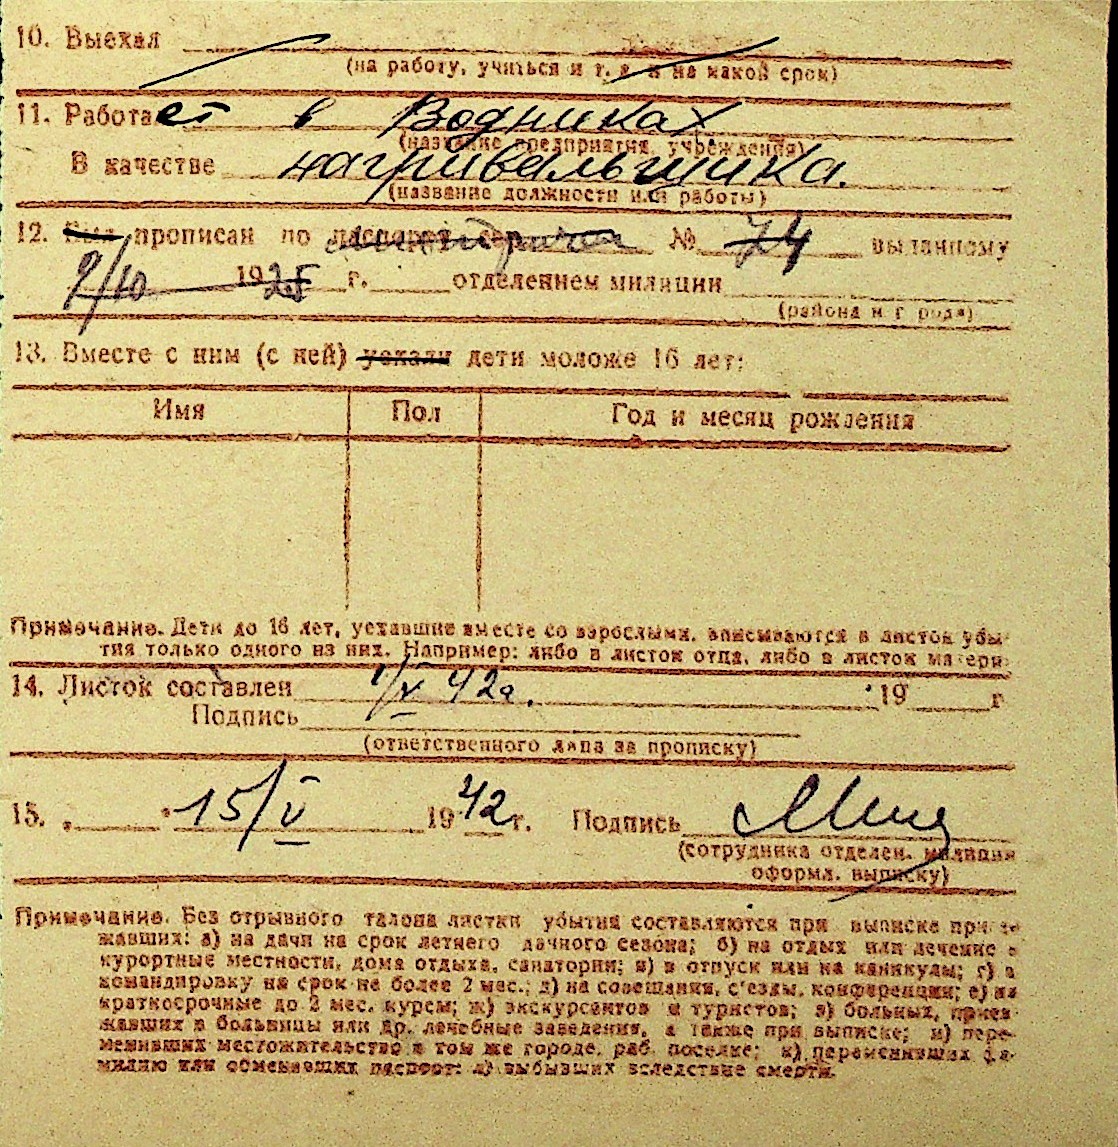 10. Выехал
(на работу, учиться и т. д. и на какой срок)
11. Работает в Водниках
(название предприятия, учреждения)
В качестве нагривальщика.
(название должности или работы)
12. Был прописан по № 74 выданному
9/10 1925 г. отделением милиции
(района и города)
13. Вместе с ним (с ней) уехали дети моложе 16 лет:
Имя Пол Год и месяц рождения
Примечание. Дети до 16 лет, уехавшие вместе со взрослыми, вписываются в листок убы-
тия только одного из них. Например: либо в листок отца, либо в листок матери
14. Листок составлен 1/V 42г. 19 г
Подпись
(ответственного лица за прописку)
15. „ " 15/V 1942 г. Подпись
(сотрудника отделен. милиции
оформл. выписку)
Примечание. Без отрывного талона листки убытия составляются при выписке приез-
жавших: а) на дачи на срок летнего дачного сезона; б) на отдых или лечение в
курортные местности, дома отдыха, санатории; в) в отпуск или на каникулы; г) в
командировку на срок не более 2 мес.; д) на совещания, с'езды, конференции; е) на
краткосрочные до 2 мес. курсы; ж) экскурсантов и туристов; з) больных, приез-
жавших в больницы или др. лечебные заведения, а также при выписке; и) пере-
менивших местожительство в том же городе, раб. поселке; к) переменивших фа-
милию или обменивших паспорт; л) выбывших вследствие смерти.